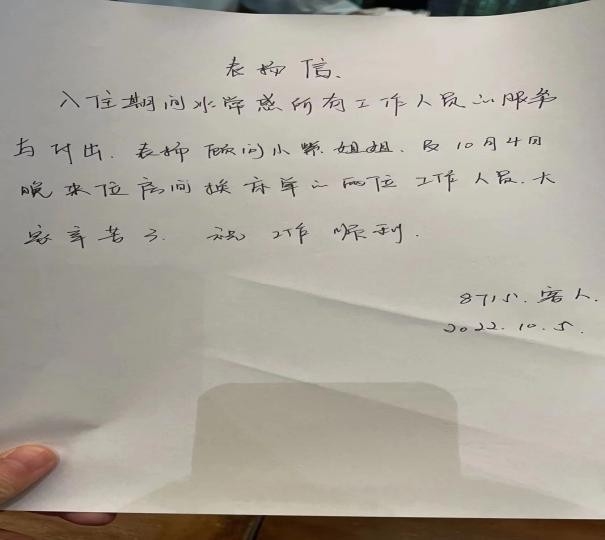 表扬信.
入住期间非常感所有工作人员的服务
与付出. 表扬顾问小颖姐姐. 及10月4日
晚来位房间换床单的两位工作人员. 大
家辛苦了. 祝工作顺利.
8715. 客人.
2022.10.5.